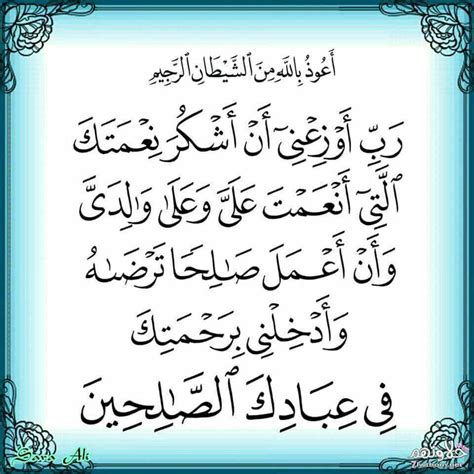 أَعُوذُ بِاللَّهِ مِنَ ٱلشَّيْطَانِ ٱلرَّجِيمِ
رَبِّ أَوْزِعْنِىٓ أَنْ أَشْكُرَ نِعْمَتَكَ
ٱلَّتِىٓ أَنْعَمْتَ عَلَىَّ وَعَلَىٰ وَٰلِدَىَّ
وَأَنْ أَعْمَلَ صَٰلِحًا تَرْضَىٰهُ
وَأَدْخِلْنِى بِرَحْمَتِكَ
فِى عِبَادِكَ ٱلصَّٰلِحِينَ
Sara Ali